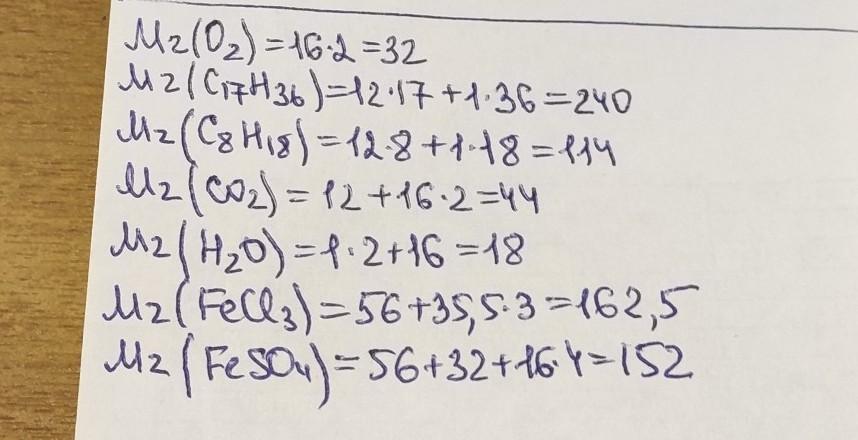 Mr(O₂)=16·2=32
Mr(C₁₇H₃₆)=12·17+1·36=240
Mr(C₈H₁₈)=12·8+1·18=114
Mr(CO₂)=12+16·2=44
Mr(H₂O)=1·2+16=18
Mr(FeCl₃)=56+35,5·3=162,5
Mr(FeSO₄)=56+32+16·4=152